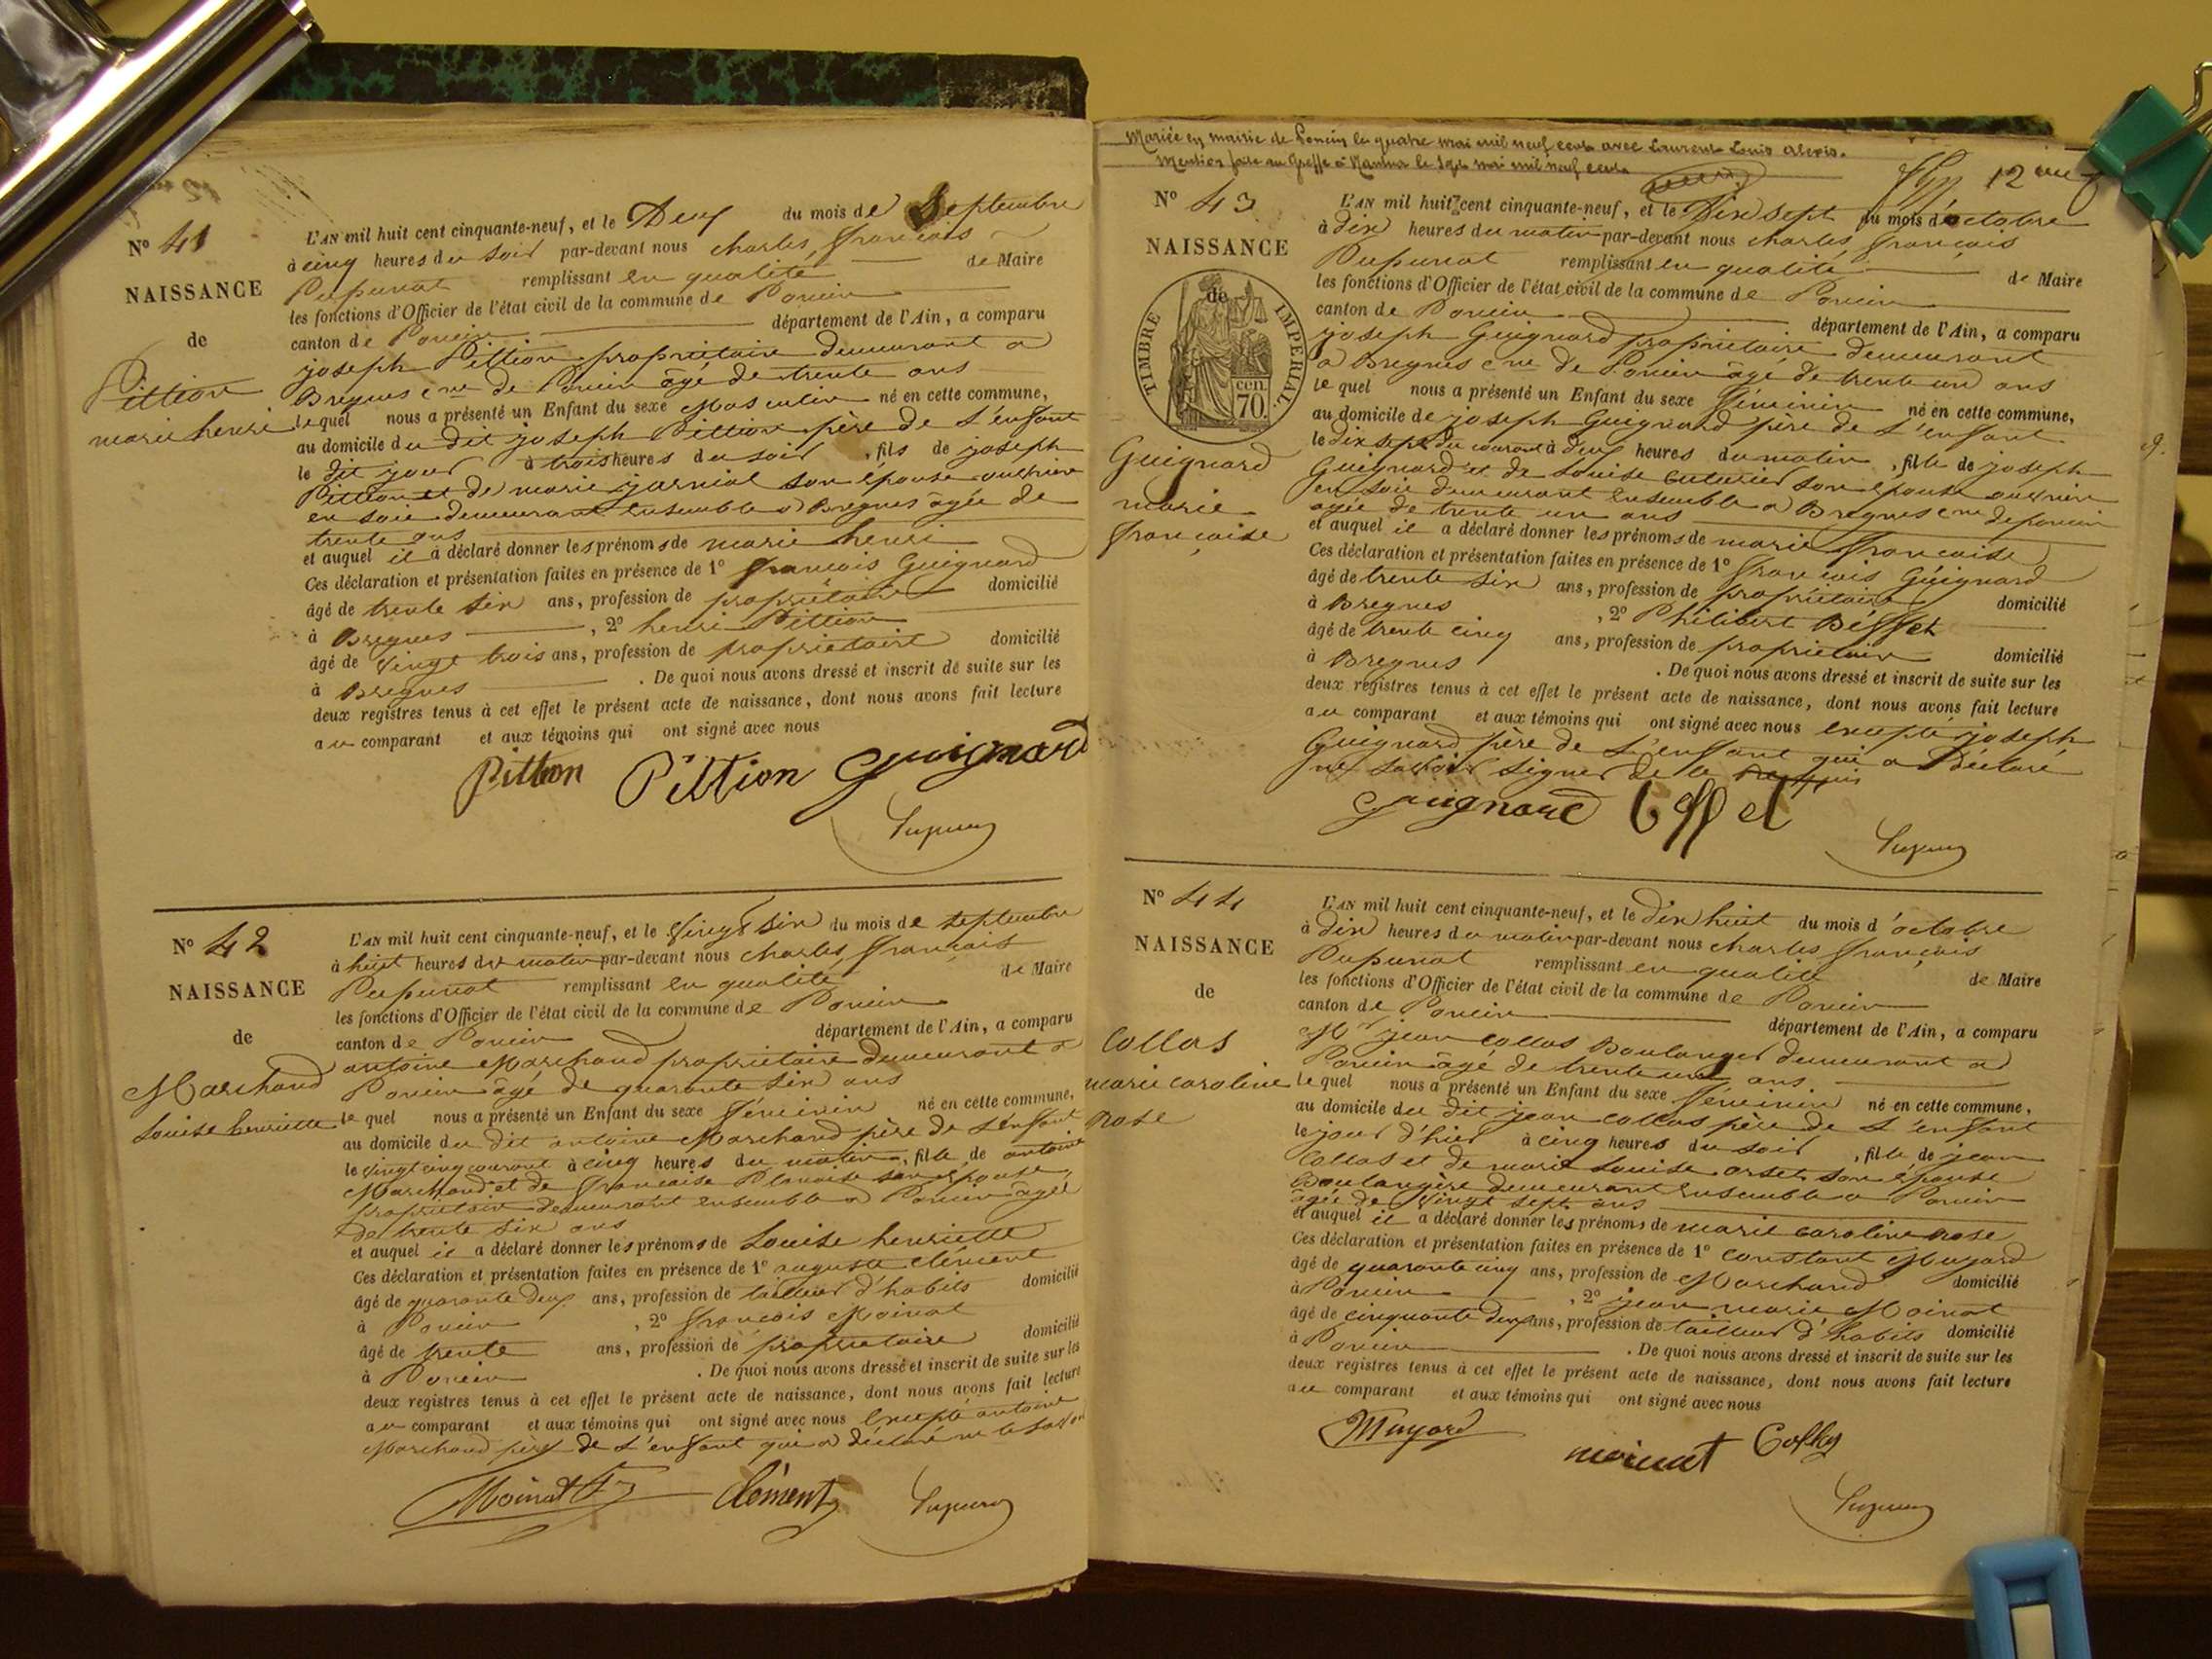 N° 41
NAISSANCE
de
Pittion
marie henri
L'AN mil huit cent cinquante-neuf, et le Deux du mois de Septembre
à cinq heures du soir par-devant nous charles françois
Pupunat remplissant en qualité de Maire
les fonctions d'Officier de l'état civil de la commune de Poncin
canton de Poncin département de l'Ain, a comparu
joseph Pittion propriétaire demeurant a
Bregnes cne de Poncin âgé de trente ans
lequel nous a présenté un Enfant du sexe Masculin né en cette commune,
au domicile du dit joseph Pittion père de l'enfant
le dit jour à trois heures du soir, fils de joseph
Pittion et de marie jarniol son épouse ouvrière
en soie demeurant ensemble a Bregnes âgée de
trente ans
et auquel il a déclaré donner les prénoms de marie henri
Ces déclaration et présentation faites en présence de 1° françois Guignard
âgé de trente six ans, profession de propriétaire domicilié
à Bregnes, 2° henri Pittion
âgé de vingt trois ans, profession de propriétaire domicilié
à Bregnes. De quoi nous avons dressé et inscrit de suite sur les
deux registres tenus à cet effet le présent acte de naissance, dont nous avons fait lecture
au comparant et aux témoins qui ont signé avec nous
Pittion Pittion Guignard
Pupunat
N° 42
NAISSANCE
de
Marchand
Louise henriette
L'AN mil huit cent cinquante-neuf, et le vingt six du mois de septembre
à huit heures du matin par-devant nous charles françois
Pupunat remplissant en qualité de Maire
les fonctions d'Officier de l'état civil de la commune de Poncin
canton de Poncin département de l'Ain, a comparu
antoine Marchand propriétaire demeurant a
Poncin âgé de quarante six ans
le quel nous a présenté un Enfant du sexe féminin né en cette commune,
au domicile du dit antoine Marchand père de l'enfant
le vingt cinq courant à cinq heures du matin, fille de antoine
Marchand et de françoise son épouse
propriétaire demeurant ensemble a Poncin âgée
de trente six ans
et auquel il a déclaré donner les prénoms de Louise henriette
Ces déclaration et présentation faites en présence de 1° auguste clément
âgé de quarante deux ans, profession de tailleur d'habits domicilié
à Poncin, 2° françois Moinat
âgé de trente ans, profession de propriétaire domicilié
à Poncin. De quoi nous avons dressé et inscrit de suite sur les
deux registres tenus à cet effet le présent acte de naissance, dont nous avons fait lecture
au comparant et aux témoins qui ont signé avec nous excepté antoine
Marchand père de l'enfant qui a déclaré ne le savoir
Moinat Clément Pupunat
Mariée en mairie de Poncin le quatre mai mil neuf cent avec Laurent Louis Alexis.
Mention faite au Greffe à Nantua le mai mil neuf cent
12 me
N° 43
NAISSANCE
de
TIMBRE IMPERIAL
70 cen.
Guignard
marie
françoise
L'AN mil huit cent cinquante-neuf, et le Dix sept du mois d'octobre
à dix heures du matin par-devant nous charles françois
Pupunat remplissant en qualité de Maire
les fonctions d'Officier de l'état civil de la commune de Poncin
canton de Poncin département de l'Ain, a comparu
joseph Guignard propriétaire demeurant
a Bregnes cne de Poncin âgé de trente un ans
le quel nous a présenté un Enfant du sexe féminin né en cette commune,
au domicile de joseph Guignard père de l'enfant
le dix sept du courant à deux heures du matin, fille de joseph
Guignard et de Louise son épouse ouvrière
en soie demeurant ensemble a Bregnes cne de poncin
agée de trente un ans
et auquel il a déclaré donner les prénoms de marie françoise
Ces déclaration et présentation faites en présence de 1° françois Guignard
âgé de trente six ans, profession de propriétaire domicilié
à Bregnes, 2° Philibert Beffet
âgé de trente cinq ans, profession de propriétaire domicilié
à Bregnes. De quoi nous avons dressé et inscrit de suite sur les
deux registres tenus à cet effet le présent acte de naissance, dont nous avons fait lecture
au comparant et aux témoins qui ont signé avec nous excepté joseph
Guignard père de l'enfant qui a Déclaré
ne savoir signer de ce requis
Guignard Pupunat
N° 44
NAISSANCE
de
Collas
marie caroline
Rose
L'AN mil huit cent cinquante-neuf, et le dix huit du mois d'octobre
à dix heures du matin par-devant nous charles françois
Pupunat remplissant en qualité de Maire
les fonctions d'Officier de l'état civil de la commune de Poncin
canton de Poncin département de l'Ain, a comparu
Mr jean Collas Boulanger demeurant a
Poncin âgé de trente un ans
le quel nous a présenté un Enfant du sexe féminin né en cette commune,
au domicile du dit jean collas père de l'enfant
le jour d'hier à cinq heures du soir, fille de jean
Collas et de marie Louise orset son épouse
Boulangère demeurant ensemble a Poncin
âgée de vingt sept ans
et auquel il a déclaré donner les prénoms de marie caroline Rose
Ces déclaration et présentation faites en présence de 1° constant Muyard
âgé de quarante cinq ans, profession de Marchand domicilié
à Poncin, 2° jean marie Moinat
âgé de cinquante deux ans, profession de tailleur d'habits domicilié
à Poncin. De quoi nous avons dressé et inscrit de suite sur les
deux registres tenus à cet effet le présent acte de naissance, dont nous avons fait lecture
au comparant et aux témoins qui ont signé avec nous
Muyard moinat Collas
Pupunat